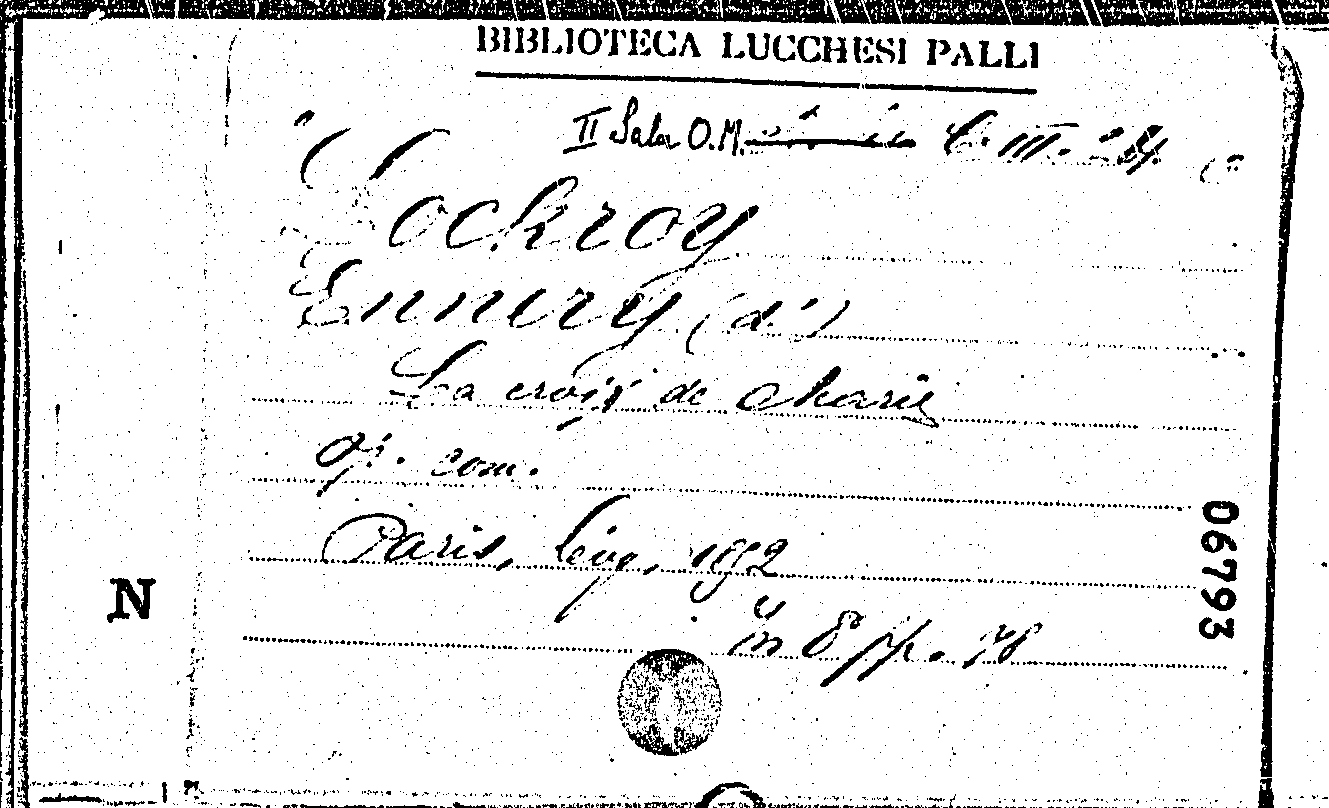 BIBLIOTECA LUCCHESI PALLI
II Sala O.M. C. III.
Lockroy
Ennery (d')
La croix de Marie
op. com.
Paris, Lévy, 1852
in 8° pp. 78
06793
N